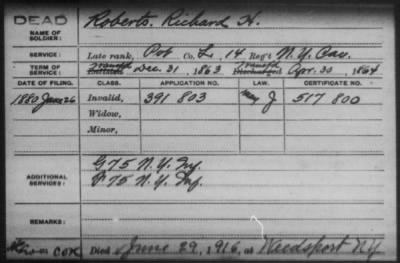 DEAD
NAME OF SOLDIER: Roberts, Richard H.
SERVICE: Late rank, Pvt Co. L, 14 Reg't N.Y. Cav.
TERM OF SERVICE: Enlisted Dec. 31, 1863 Discharged Apr. 30, 1864
DATE OF FILING. CLASS. APPLICATION NO. LAW. CERTIFICATE NO.
1880 June 26 Invalid, 391 803 J 517 800
Widow,
Minor,
ADDITIONAL SERVICES: G 75 N.Y. Inf.
75 N.Y. Inf.
REMARKS:
Died June 29, 1916, at Weedsport N.Y.